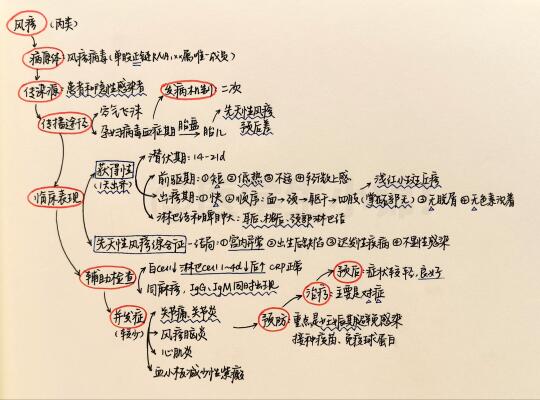 风疹 (丙类)
病原体:风疹病毒(单股正链RNA,xx属唯一成员)
传染源:患者和隐性感染者 发病机制:二次
传播途径 空气飞沫
孕妇病毒血症期 胎盘 胎儿 先天性风疹 预后差
临床表现
获得性
潜伏期:14-21d
前驱期:①短②低热③不适④轻微上感 浅红小斑丘疹
出疹期:①快②顺序:面→颈→躯干→四肢(掌跖部无)③无脱屑④无色素沉着
淋巴结和脾肿大:耳后、枕后、颈部淋巴结
先天性风疹综合征 ①宫内异常②出生后缺陷③迟发性疾病④不显性感染
辅助检查
白cell↓ 淋巴cell 1-4d↓后↑ CRP正常
同麻疹,IgG、IgM同时出现
并发症(较少)
关节痛、关节炎
风疹脑炎
心肌炎
血小板减少性紫癜
预防:重点是妊娠期避免感染
接种疫苗、免疫球蛋白
治疗:主要是对症
预后:症状较轻,良好